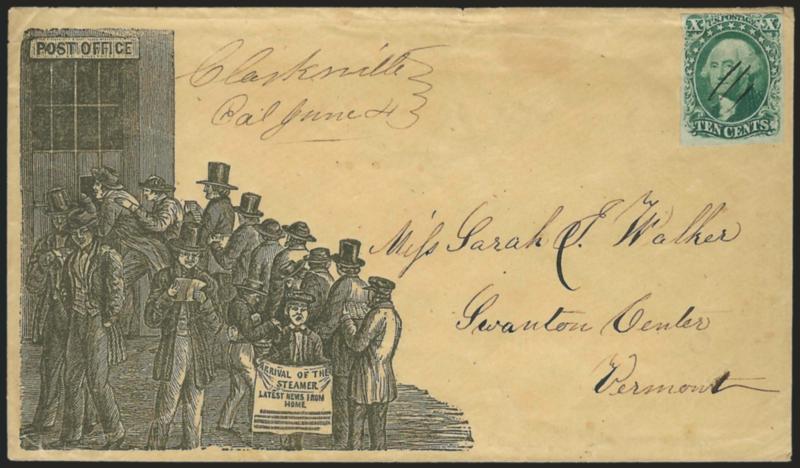 POST OFFICE
Clarksville
Cal June 4
X U.S. POSTAGE X
TEN CENTS
Miſs Sarah E. Walker
Swanton Center
Vermont
ARRIVAL OF THE
STEAMER
LATEST NEWS FROM
HOME.